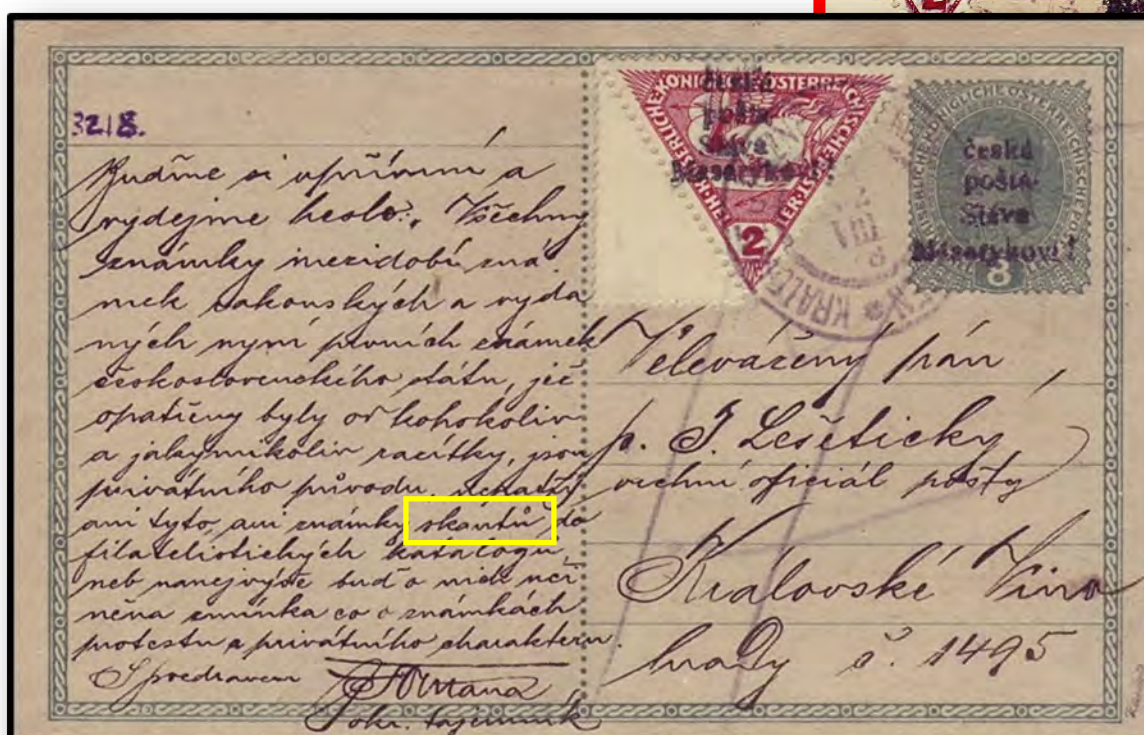 3218.
Buďme si upřímní a
vydejme heslo: „Všechny
známky mezidobí zná-
mek rakouských a vyda
ných nyní prvních známek
československého státu, jež
opatřeny byly od kohokoliv
a jakýmikoliv razítky, jsou
privátního původu,
ani tyto, ani známky skautů, do
filatelistických katalogů,
neb nanejvýše buď o nich uči
něna zmínka co o známkách
protestu a privátního charakteru.
S pozdravem
Okr. tajemník
KAISERLICHE KÖNIGLICHE ÖSTERREICHISCHE
česká
pošta
Sláva
Masarykovi!
2
KAISERLICHE KÖNIGLICHE ÖSTERREICHISCHE POST
česká
pošta.
Sláva
Masarykovi!
8
VIII
KRÁLO
Velevážený pán,
p. J. Lešetický
vrchní oficiál pošty
Královské Vino
hrady č. 1495